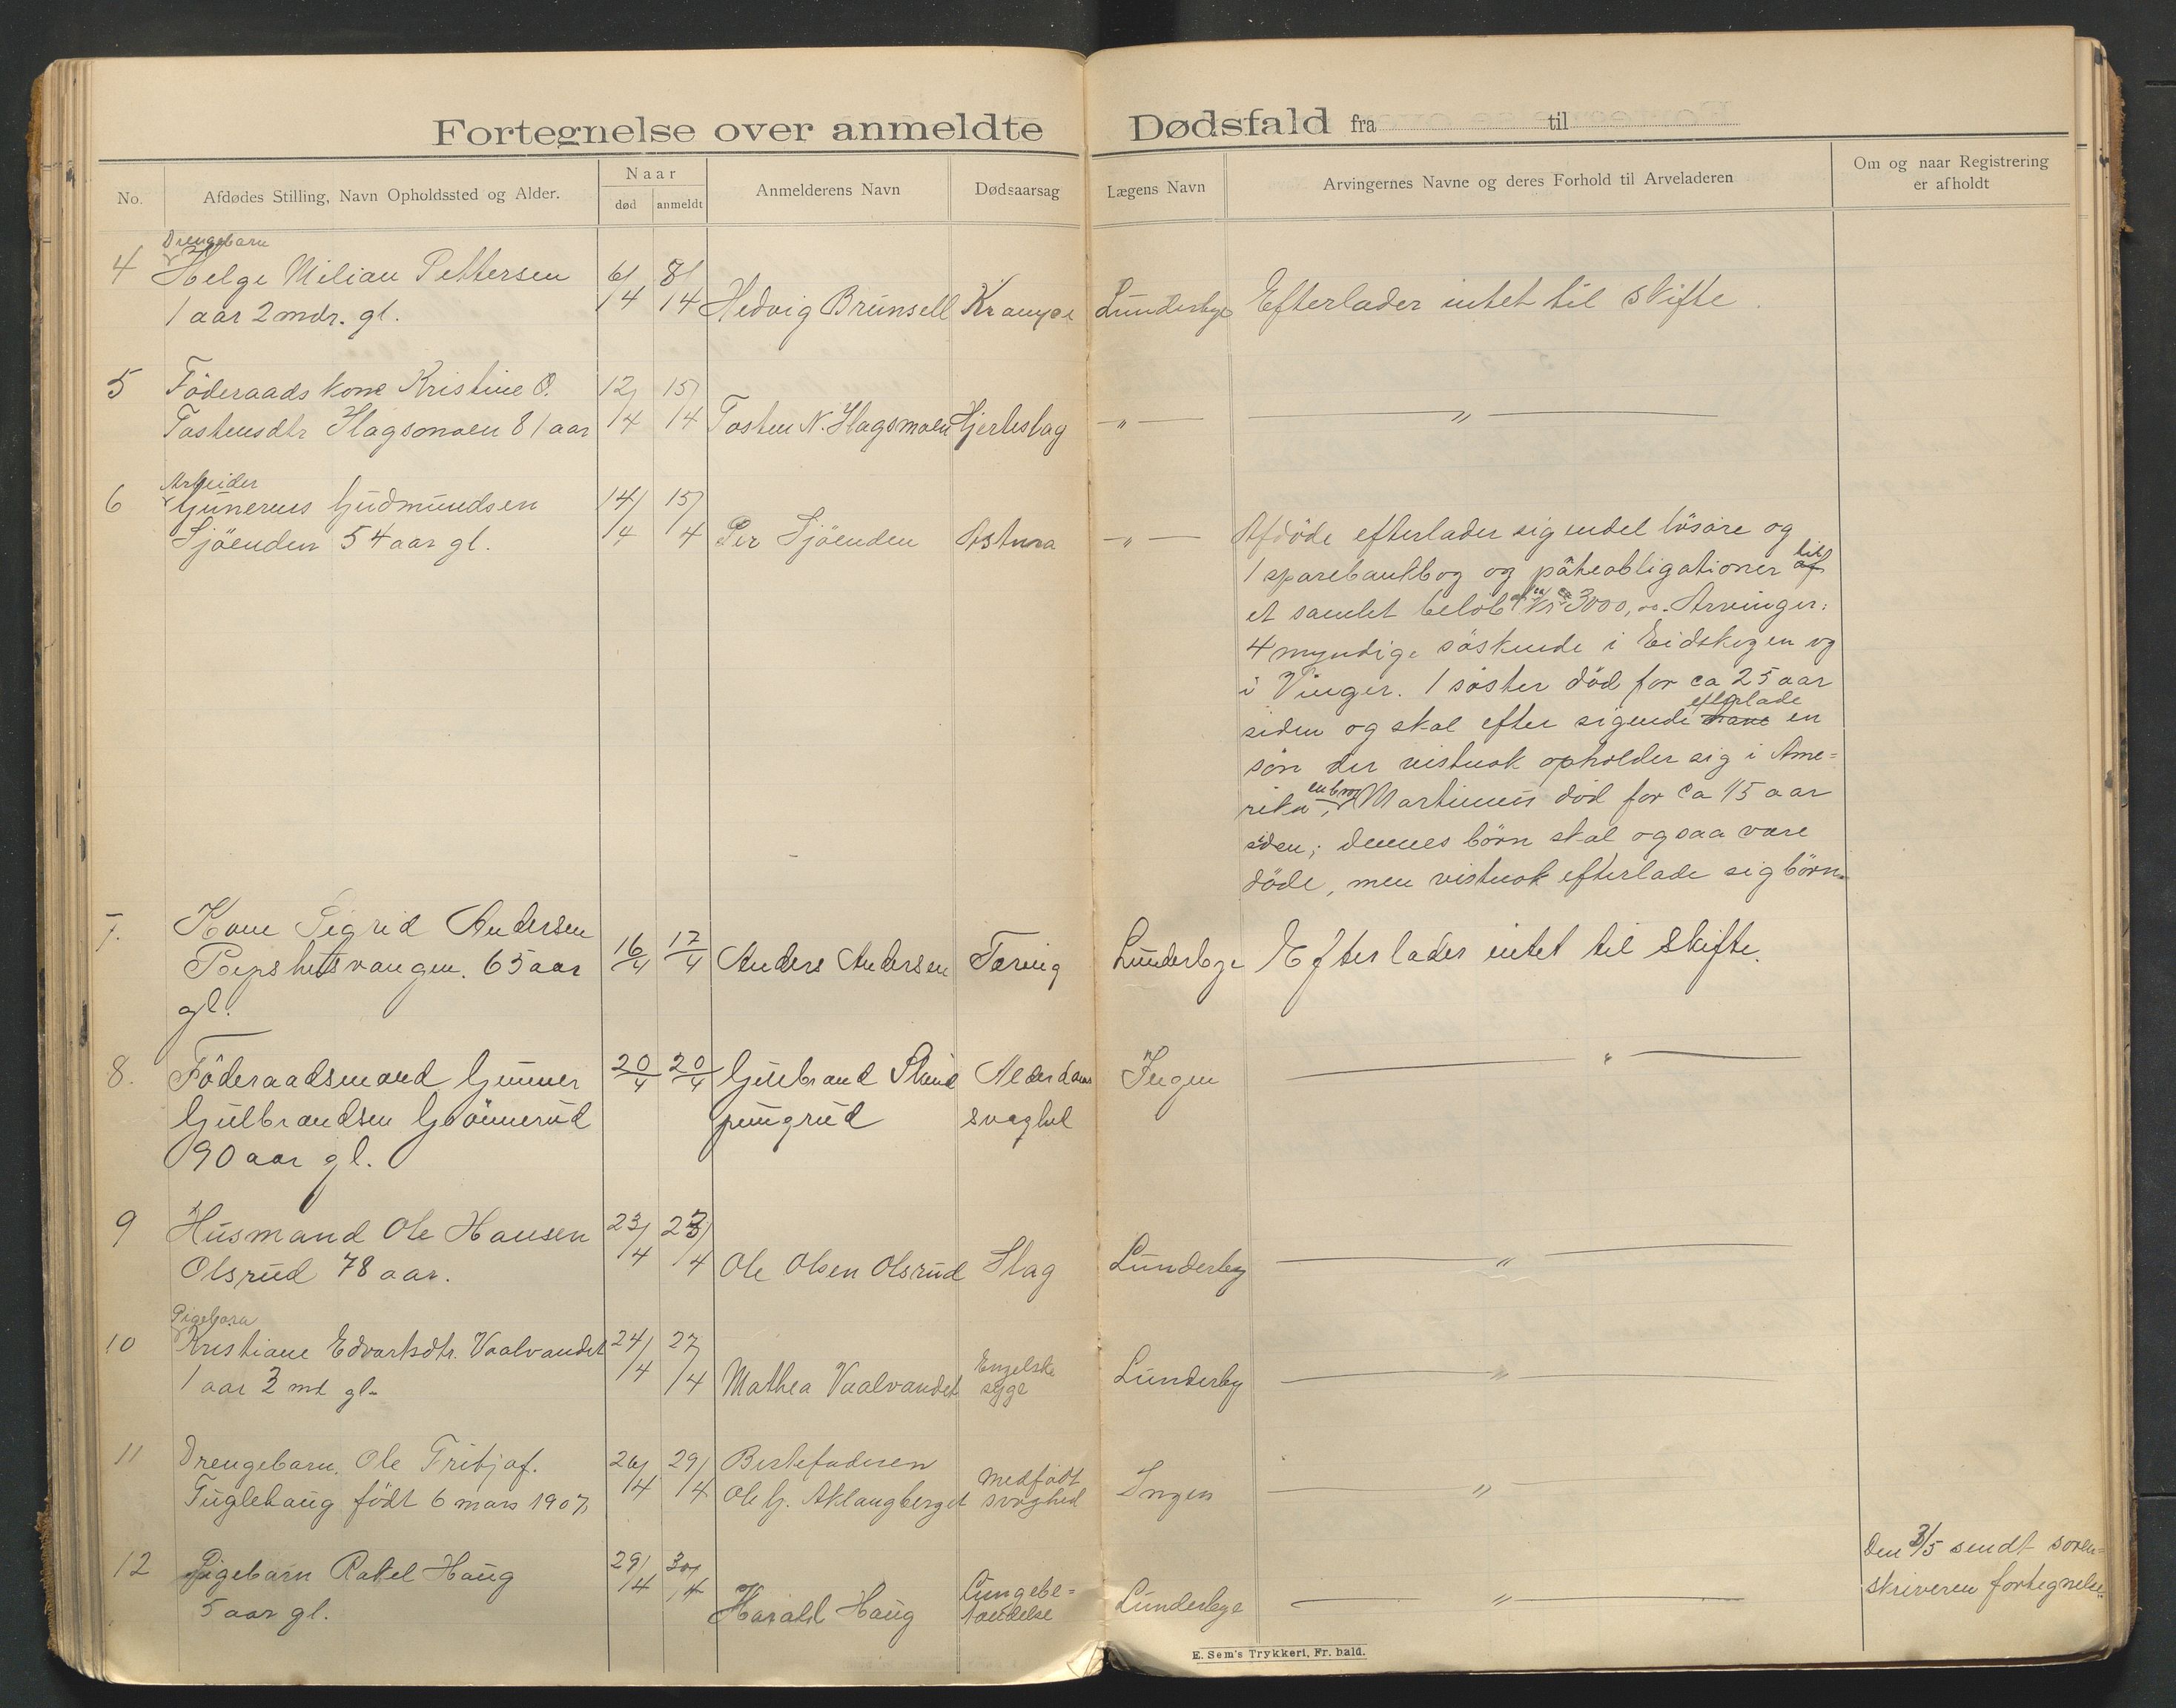 Fortegnelse over anmeldte Dødsfald fra til
No.
Afdødes Stilling, Navn Opholdssted og Alder.
Naar
død anmeldt
Anmelderens Navn
Dødsaarsag
Lægens Navn
Arvingernes Navne og deres Forhold til Arveladeren
Om og naar Registrering
er afholdt
Drengebarn
4 Helge Milian Pettersen 6/ 8/
1 aar 2 mdr. gl. /4 /4 Hedvig Brunsell Krampe Lunderbye Efterlader intet til skifte.
5 Föderaads kone Kristine O. 12/ 15/
Tostensdtr Slagsmoen 81 aar /4 /4 Tosten N. Slagsmoen Hjerteslag — „ — — „ —
Arbeider
6 Gunerius Gudmundsen 14/ 15/
Sjöenden 54 aar gl. /4 /4 Per Sjöenden Astma — „ — Afdöde efterlader sig endel lösöre og
til
1 sparebankbog og panteobligationer af
et samlet belöb af ca Kr 3000,00. Arvinger:
4 myndige söskende i Eidskogen og
i Vinger. 1 söster död for ca 25 aar
efterlade
siden og skal efter sigende have en
sön der vistnok opholder sig i Ame=
en bror
rika, Martinus död for ca 15 aar
siden; dennes börn skal ogsaa være
döde, men vistnok efterlade sig börn.
7. Kone Sigrid Andersen
65 aar 16/4 17/4 Anders Andersen Tæring Lunderbye Efterlader intet til skifte.
gl.
8. Föderaadsmand Gunner 20/4 20/4 Gulbrand Alderdoms Ingen — „ —
Gulbrandsen Grönnerud pungrud svaghed
90 aar gl.
9 Husmand Ole Hansen 23/ 23/
Olsrud 78 aar. /4 /4 Ole Olsen Olsrud Slag Lunderby — „ —
Pigebarn
10 Kristiane Edvartsdtr. Vaalvandet 24/ 27/ Engelske
1 aar 3 md gl. /4 /4 Mathea Vaalvandet syge Lunderby — „ —
11 Drengebarn Ole Fritjof. 26/ 29/ Bestefaderen Medfödt
Fuglehaug födt 6 mars 1907, /4 /4 Ole G. Aklangberget svaghed Ingen — „ —
12 Pigebarn Rakel Haug 29/ 30/ Lungebe= Den 3/5 sendt soren=
5 aar gl. /4 /4 Harald Haug tændelse Lunderbye — „ — skriveren fortegnelse.
E. Sem's Trykkeri, Fr. hald.